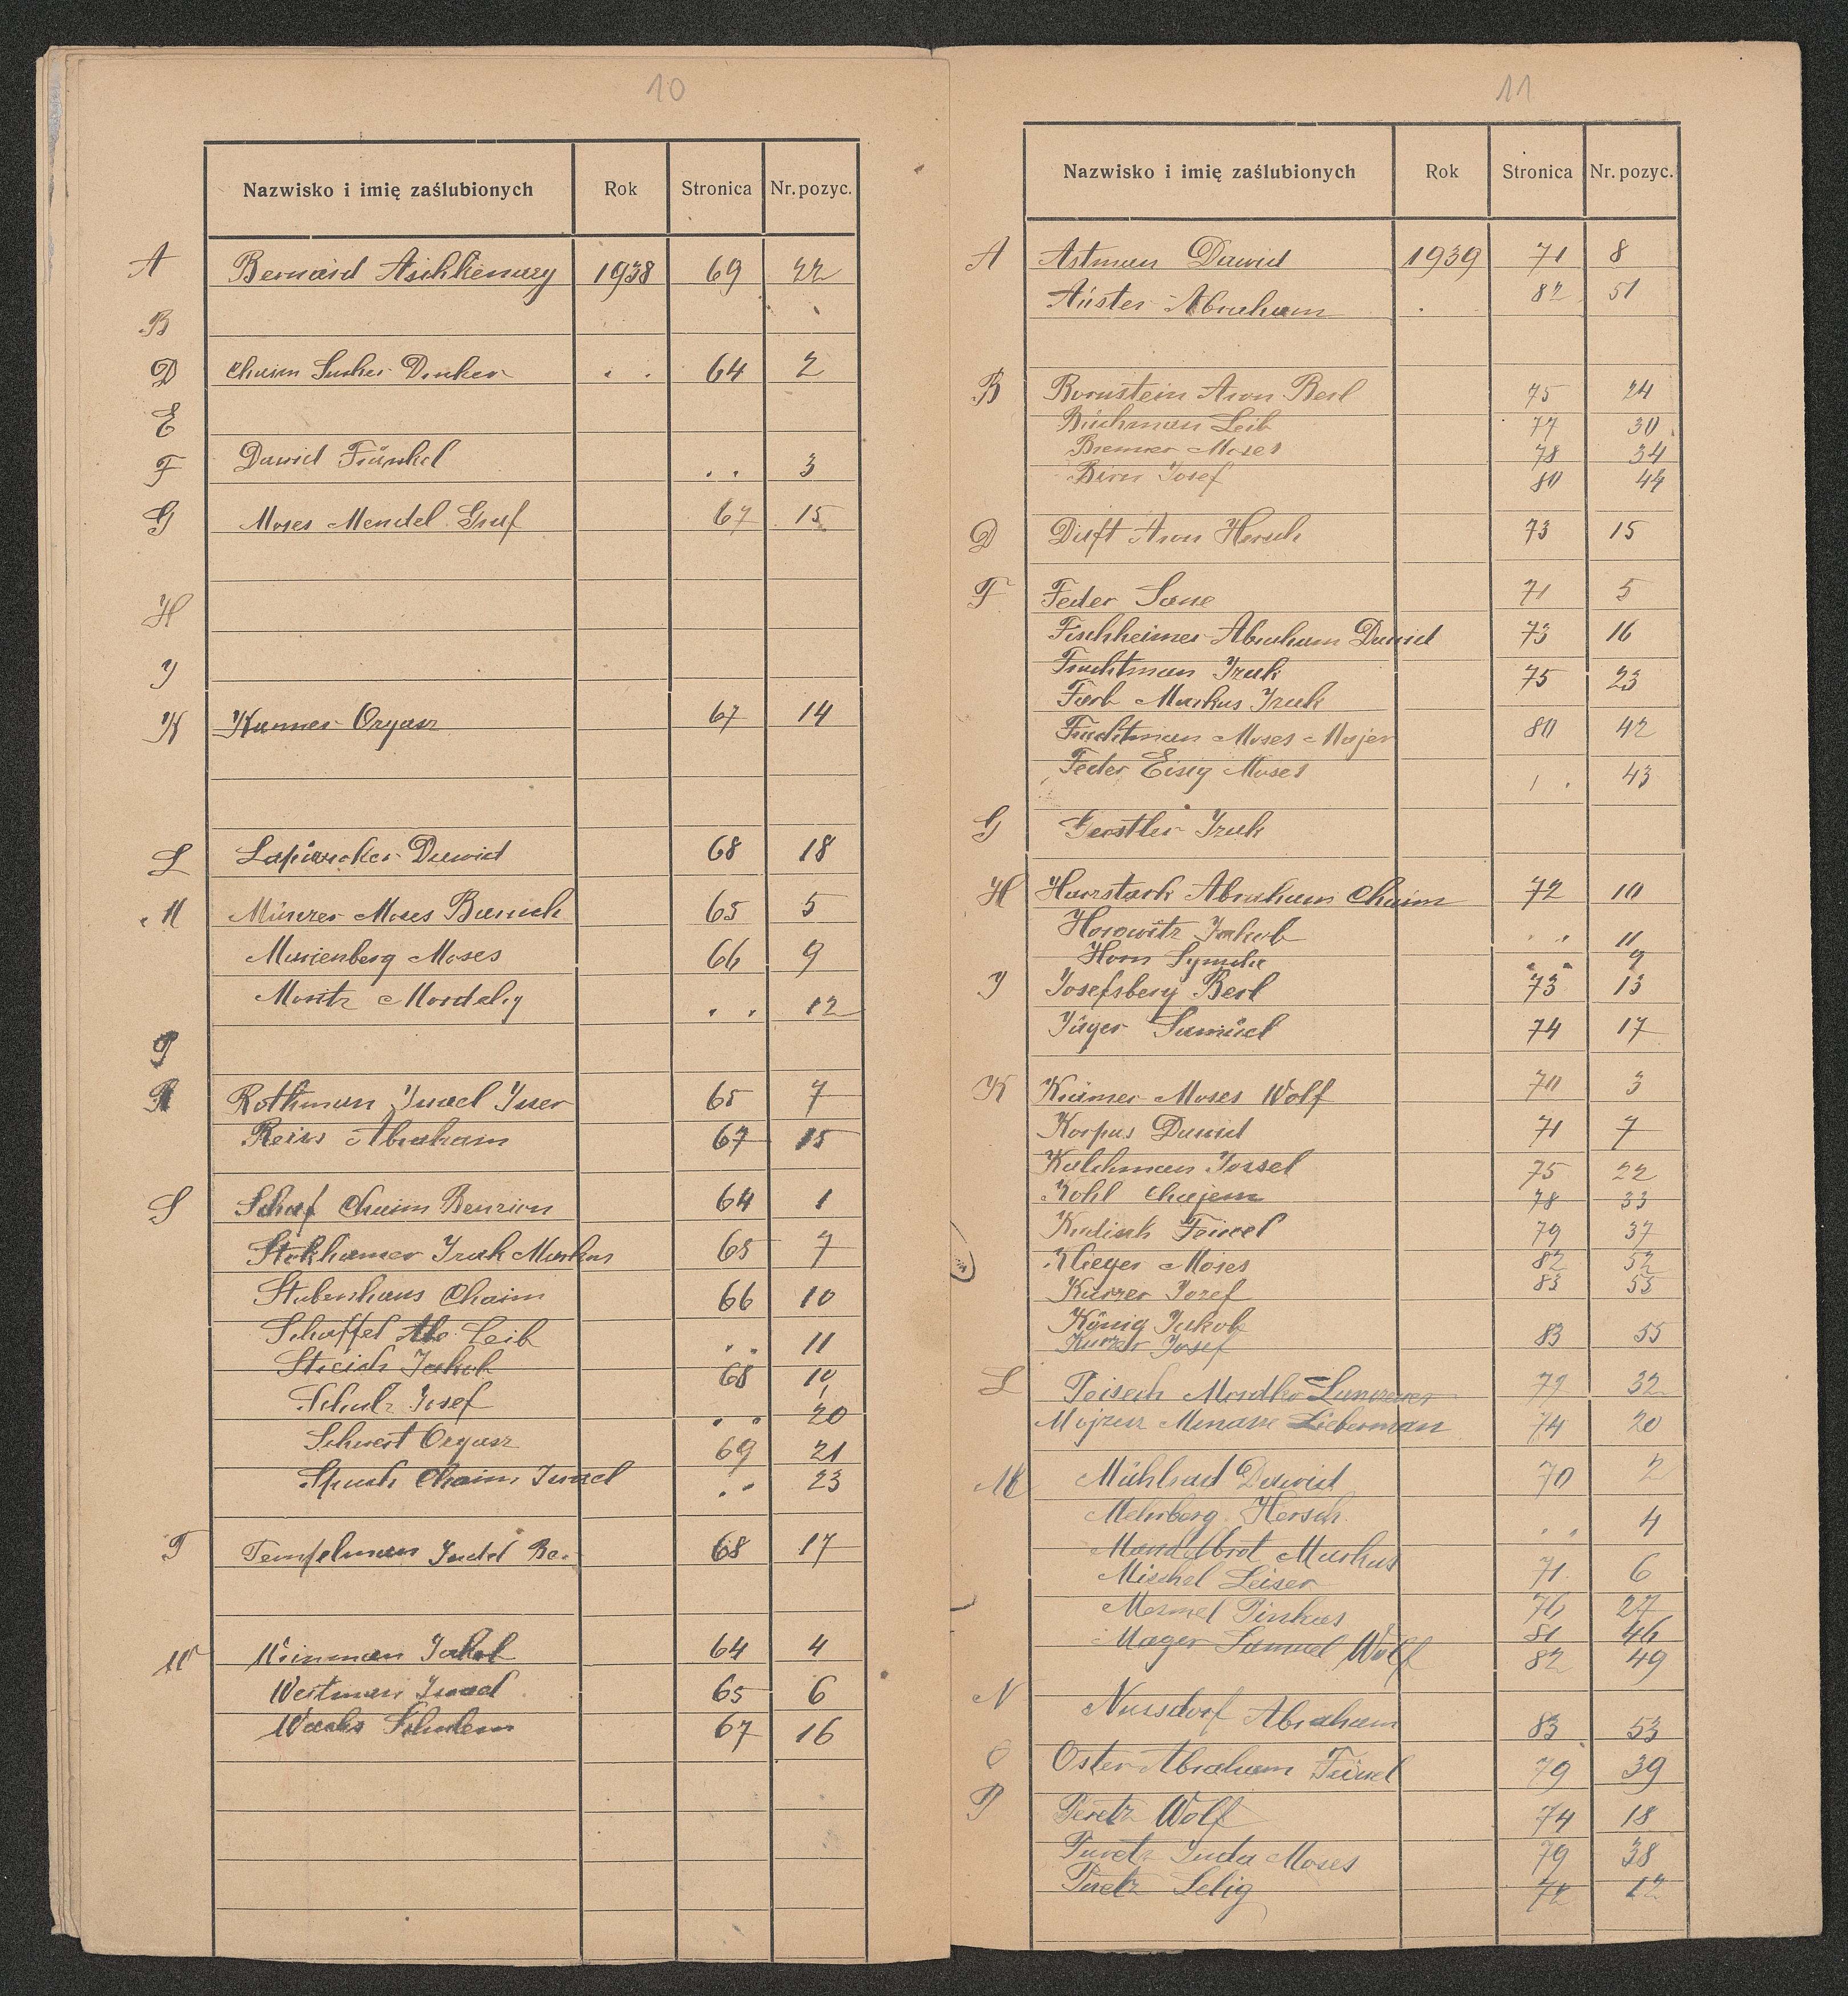 10
Nazwisko i imię zaślubionych Rok Stronica Nr. pozyc.
A Bernard Aschkenazy 1938 69 22
B
D Chaim Sucher Dinker . . 64 2
E
F Dawid Fränkel . . 3
G Moses Mendel Graf 67 15
H
J
K Kanner Oryasz 67 14
L Dawid 68 18
M Münzer Moses Baruch 65 5
Marienberg Moses 66 9
Moritz . . 12
P
R Rothman Israel Isser 65 7
Reiss Abraham 67 15
S Schaf Chaim Benzion 64 1
Stokhamer Izak Markus 65 7
Stubenhaus Chaim 66 10
Schaffel Abr. Leib . . 11
Jakob 68 19
Schulz Josef . . 20
Oryasz 69 21
Chaim Israel . . 23
T Tempelman Judel Be. 68 17
W Weinman Jakob 64 4
Weitman Israel 65 6
Wachs Schulem 67 16
11
Nazwisko i imię zaślubionych Rok Stronica Nr. pozyc.
A Astman Dawid 1939 71 8
Auster Abraham . 82 51
B Bornstein Aron Berl 75 24
Buchman Leib 77 30
Bremer Moses 78 34
Birn Josef 80 44
D Duft Aron Hersch 73 15
F Feder Sane 71 5
Fischheimer Abraham Dawid 73 16
Fruchtman Izak 75 23
Farb Markus Izak
Fruchtman Moses Majer 80 42
Feder Eisig Moses . . 43
G Gerstler Izak
H Harzstark Abraham Chaim 72 10
Horowitz Jakob . . 11
Horn Symche . . 9
J Josefsberg Berl 73 13
Jäger Samuel 74 17
K Krämer Moses Wolf 70 3
Korpus Dawid 71 7
Kalchman Jossel 75 22
Kohl Chajem 78 33
Kudisch Feiwel 79 37
Klieger Moses 82 52
Kurzer Jozef 83 55
König Jakob
Kurzer Josef 83 55
L Peisech Mordko 77 32
Mojzesz Menasse Lieberman 74 20
M Mühlrad Dawid 70 2
Mehrberg Hersch . . 4
Mandelbrot Markus
Mischel Leiser 71 6
Mesmel Pinkas 76 27
Mager Samuel Wolf 81 46
82 49
N Nussdorf Abraham 83 53
O Oster Abraham Feiwel 79 39
P Peretz Wolf 74 18
Peretz Juda Moses 79 38
Peretz Selig 72 12